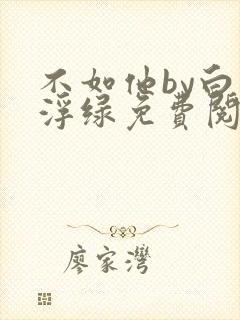 不如他by白
浮绿免費閱
廖家灣